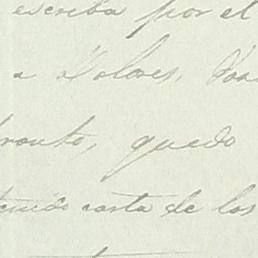 escriba por el
a Dolores.
pronto, quedo
tenido carta de los